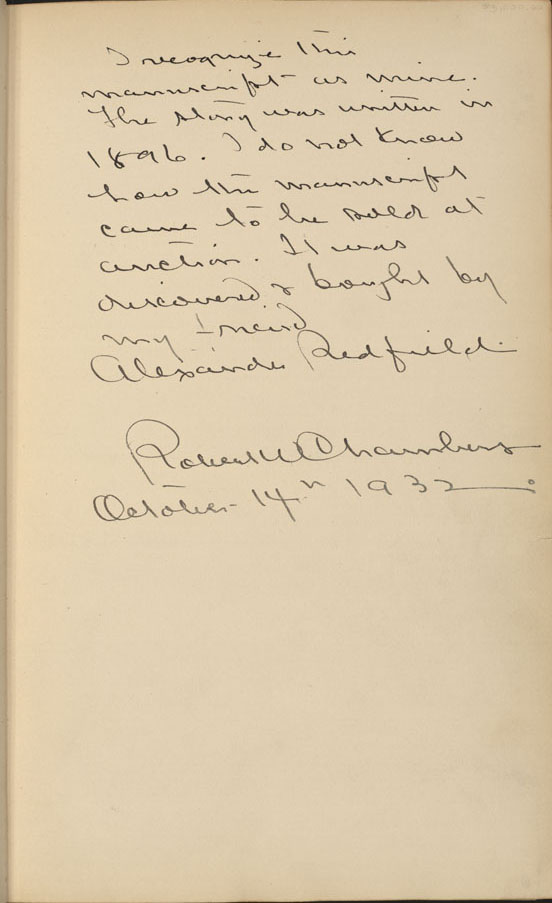 I recognize this
manuscript as mine.
The story was written in
1896. I do not know
how the manuscript
came to be sold at
auction. It was
discovered & bought by
my friend
Alexander Redfield.
Robert W Chambers
October 14th 1932